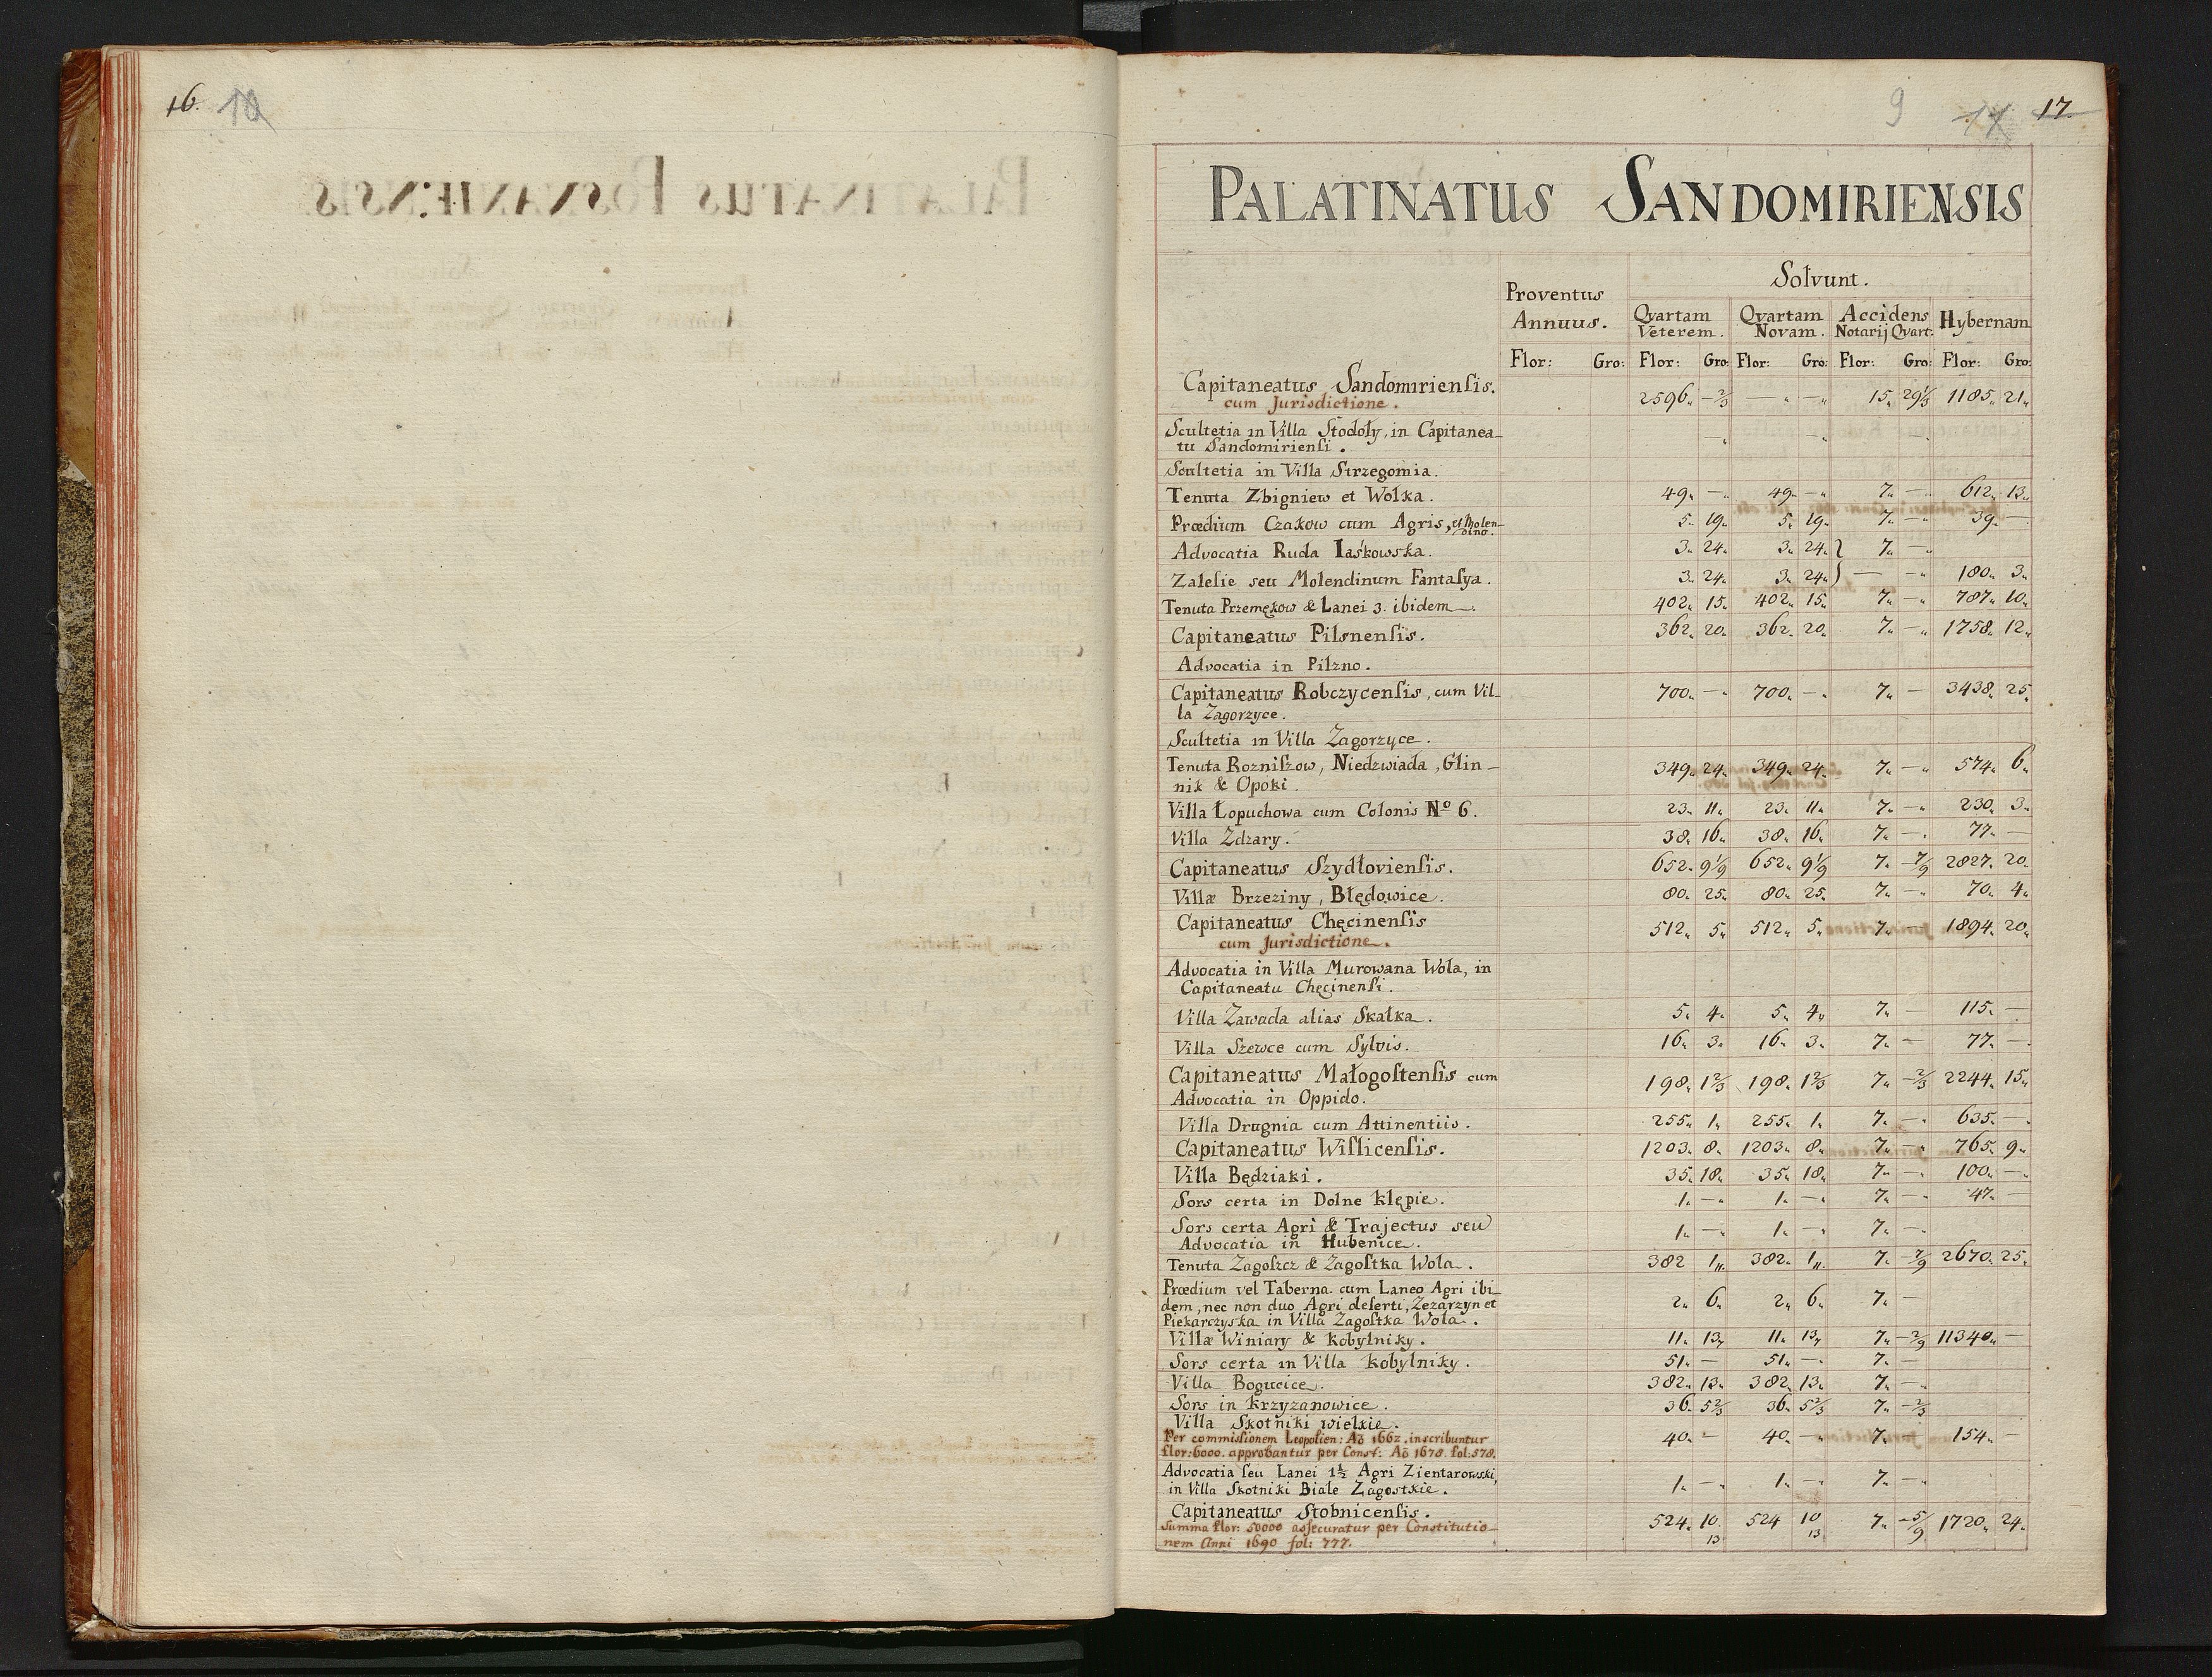 16. 10
9 11 17
PALATINATUS SANDOMIRIENSIS
Proventus Annuus. Solvunt.
Qvartam Veterem. Qvartam Novam. Accidens Notarij Qvart: Hybernam
Flor: Gro: Flor: Gro: Flor: Gro: Flor: Gro: Flor: Gro:
Capitaneatus Sandomiriensis. 2596. – 2/3 — – 15. 29 1/3 1185. 21.
cum Jurisdictione.
Scultetia in Villa Stodoły, in Capitanea– – – –
tu Sandomiriensi.
Scultetia in Villa Strzegomia.
Tenuta Zbigniew et Wolka. 49. – 49. – 7. – 612. 13.
Prædium Czakow cum Agris, et Molen– 5. 19. 5. 19. 7. – 39. –
dino.
Advocatia Ruda Iaśkowska. 3. 24. 3. 24. } 7. –
Zalesie seu Molendinum Fantasya. 3. 24. 3. 24. } — – 180. 3.
Tenuta Przemękow & Lanei 3. ibidem. 402. 15. 402. 15. 7. – 787. 10.
Capitaneatus Pilsnensis. 362. 20. 362. 20. 7. – 1758. 12.
Advocatia in Pilzno.
Capitaneatus Robczycensis, cum Vil– 700. – 700. – 7. – 3438. 25.
la Zagorzyce.
Scultetia in Villa Zagorzyce.
Tenuta Rozniszow, Niedzwiada, Glin– 349. 24. 349. 24. 7. – 574. 6.
nik & Opoki.
Villa Łopuchowa cum Colonis Nº 6. 23. 11. 23. 11. 7. – 230. 3.
Villa Zdzary. 38. 16. 38. 16. 7. – 77. –
Capitaneatus Szydłoviensis. 652. 9 1/9 652. 9 1/9 7. – 7/9 2827. 20.
Villæ Brzeziny, Błędowice. 80. 25. 80. 25. 7. – 70. 4.
Capitaneatus Chęcinensis 512. 5. 512. 5. 7. – 1894. 20.
cum Jurisdictione.
Advocatia in Villa Murowana Wola, in
Capitaneatu Chęcinensi.
Villa Zawada alias Skałka. 5. 4. 5. 4. 7. – 115. –
Villa Szewce cum Sylvis. 16. 3. 16. 3. 7. – 77. –
Capitaneatus Małogostensis cum 198. 1 2/3 198. 1 2/3 7. – 2/3 2244. 15.
Advocatia in Oppido.
Villa Drugnia cum Attinentiis. 255. 1. 255. 1. 7. – 635. –
Capitaneatus Wislicensis. 1203. 8. 1203. 8. 7. – 765. 9.
Villa Będziaki. 35. 18. 35. 18. 7. – 100. –
Sors certa in Dolne Klępie. 1. – 1. – 7. – 47. –
Sors certa Agri & Trajectus seu 1. – 1. – 7. –
Advocatia in Hubenice.
Tenuta Zagoszcz & Zagostka Wola. 382 1. 382. 1. 7. – 7/9 2670. 25.
Prædium vel Taberna cum Laneo Agri ibi– 2. 6. 2. 6. 7. –
dem, nec non duo Agri deserti, Zezarzyn et
Piekarczyska in Villa Zagostka Wola.
Villæ Winiary & Kobylniky. 11. 13. 11. 13. 7. – 2/9 11340. –
Sors certa in Villa Kobylniky. 51. – 51. – 7. –
Villa Bogucice. 382. 13. 382. 13. 7. –
Sors in Krzyzanowice. 36. 5 2/3 36. 5 2/3 7. – 2/3
Villa Skotniki wielkie. 40. – 40. – 7. – 154. –
Per commissionem Leopolien: Aõ 1662. inscribuntur
flor: 6000. approbantur per Const: Aõ 1678. fol: 578.
Advocatia seu Lanei 1½ Agri Zientarowski, 1. – 1. – 7. –
in Villa Skotniki Biale Zagostkie.
Capitaneatus Stobnicensis. 524. 10/13 524 10/13 7. – 5/9 1720. 24.
Summa flor: 50000 assecuratur per Constitutio–
nem Anni 1690 fol: 777.